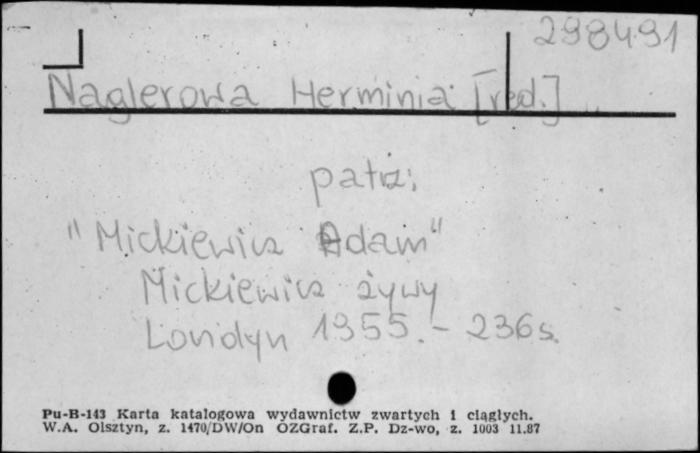 298491
Naglerowa Herminia [red.]
patrz:
"Mickiewicz Adam"
Mickiewicz żywy
Londyn 1955. - 236 s.
Pu-B-143 Karta katalogowa wydawnictw zwartych i ciągłych.
W.A. Olsztyn, z. 1470/DW/On OZGraf. Z.P. Dz-wo, z. 1003 11.87